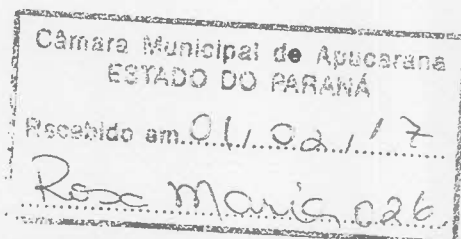 Câmara Municipal de Apucarana
ESTADO DO PARANÁ
Recebido em 01, 02, 17
Rosa Maria 026